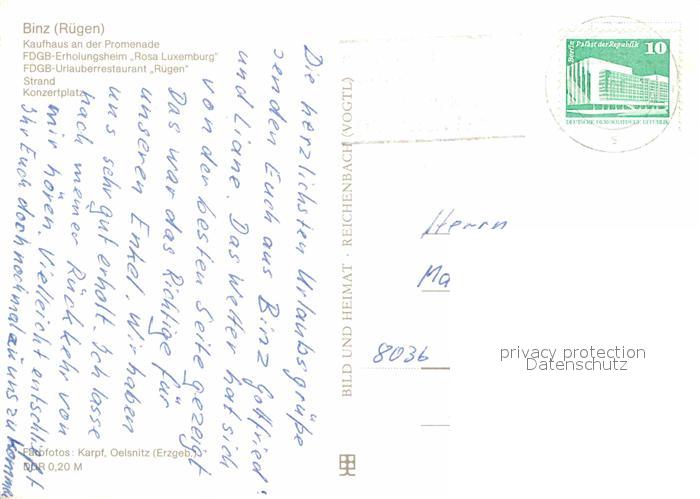 Binz (Rügen)
Kaufhaus an der Promenade
FDGB-Erholungsheim „Rosa Luxemburg"
FDGB-Urlauberrestaurant „Rügen"
Strand
Konzertplatz
Die herzlichsten Urlaubsgrüße
senden Euch aus Binz Gottfried
und Liane. Das Wetter hat sich
von der besten Seite gezeigt.
Das war das Richtige für
unseren Enkel. Wir haben
uns sehr gut erholt. Ich lasse
nach meiner Rückkehr von
mir hören. Vielleicht entschließt
Ihr Euch doch noch mal zu uns zu komm
Farbfotos: Karpf, Oelsnitz (Erzgeb.)
DDR 0,20 M
BILD UND HEIMAT · REICHENBACH (VOGTL)
Berlin Palast der Republik
10
DEUTSCHE DEMOKRATISCHE REPUBLIK
Herrn
Ma
8036
privacy protection
Datenschutz